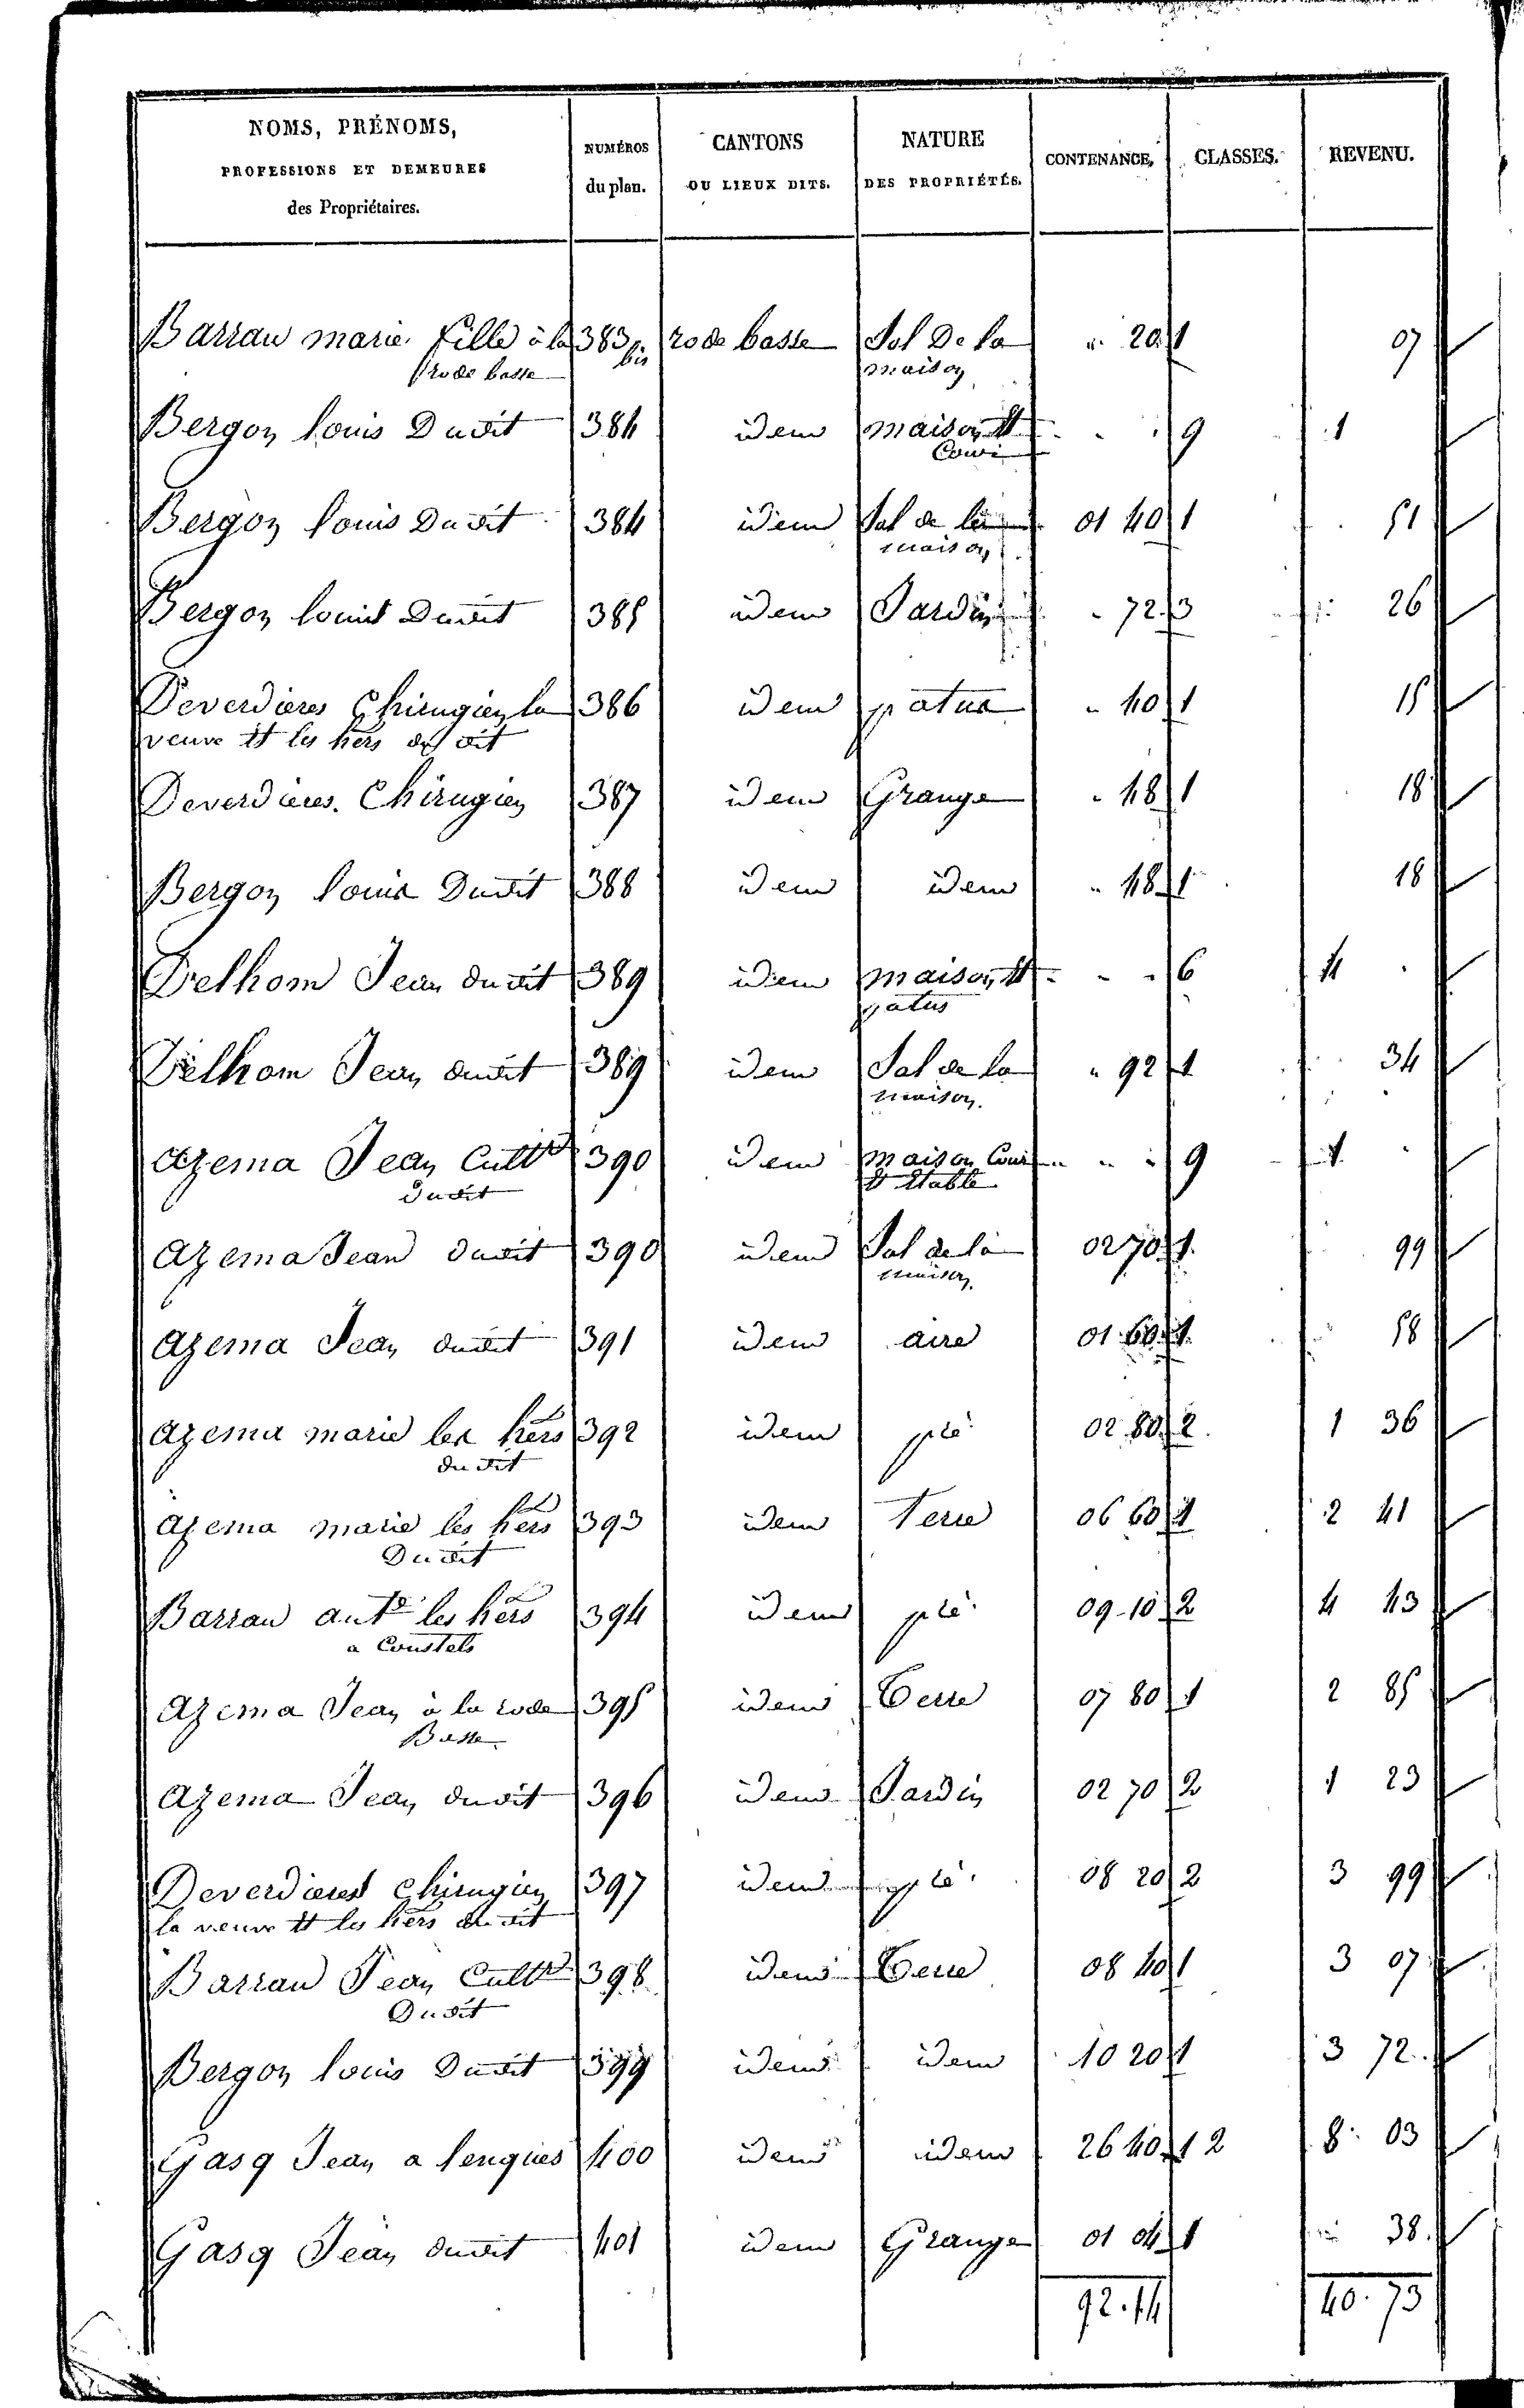 NOMS, PRÉNOMS, PROFESSIONS ET DEMEURES des Propriétaires. NUMÉROS du plan. CANTONS OU LIEUX DITS. NATURE DES PROPRIÉTÉS. CONTENANCE. CLASSES. REVENU.
Barrau marie fille à la 383 bis rode basse Sol De la " 20 1 07
rode basse maison
Bergon louis Dudit 384 idem maison et 9 1
Cour
Bergon louis Dudit 384 idem Sol de la 01 40 1 51
maison
Bergon louis Dudit 385 idem Jardin " 72 3 26
Deverdieres Chirugien la 386 idem patus " 40 1 15
veuve et les hers du dit
Deverdieres Chirugien 387 idem Grange " 48 1 18
Bergon louis Dudit 388 idem idem " 48 1 18
Delhom Jean dudit 389 idem maison et " " " 6 4
patus
Delhom Jean dudit 389 idem Sol de la " 92 1 34
maison
azema Jean Cultr 390 idem maison Cour " " " 9 1
dudit & Etable
azema Jean dudit 390 idem Sol de la 02 70 1 99
maison
azema Jean dudit 391 idem aire 01 60 1 58
azema marie les hers 392 idem pré 02 80 2 1 36
du dit
azema marie les hers 393 idem Terre 06 60 1 2 41
Dudit
Barrau ante les hers 394 idem pré 09 10 2 4 43
a Coustels
azema Jean à la rode 395 idem Terre 07 80 1 2 85
Basse
azema Jean dudit 396 idem Jardin 02 70 2 1 23
Deverdieres Chirugien 397 idem pré 08 20 2 3 99
la veuve et les hers du dit
Barrau Jean Cultr 398 idem Terre 08 40 1 3 07
Dudit
Bergon louis Dudit 399 idem idem 10 20 1 3 72
Gasq Jean a lengues 400 idem idem 26 40 1 2 8 03
Gasq Jean dudit 401 idem Grange 01 04 1 38
92.14 40.73